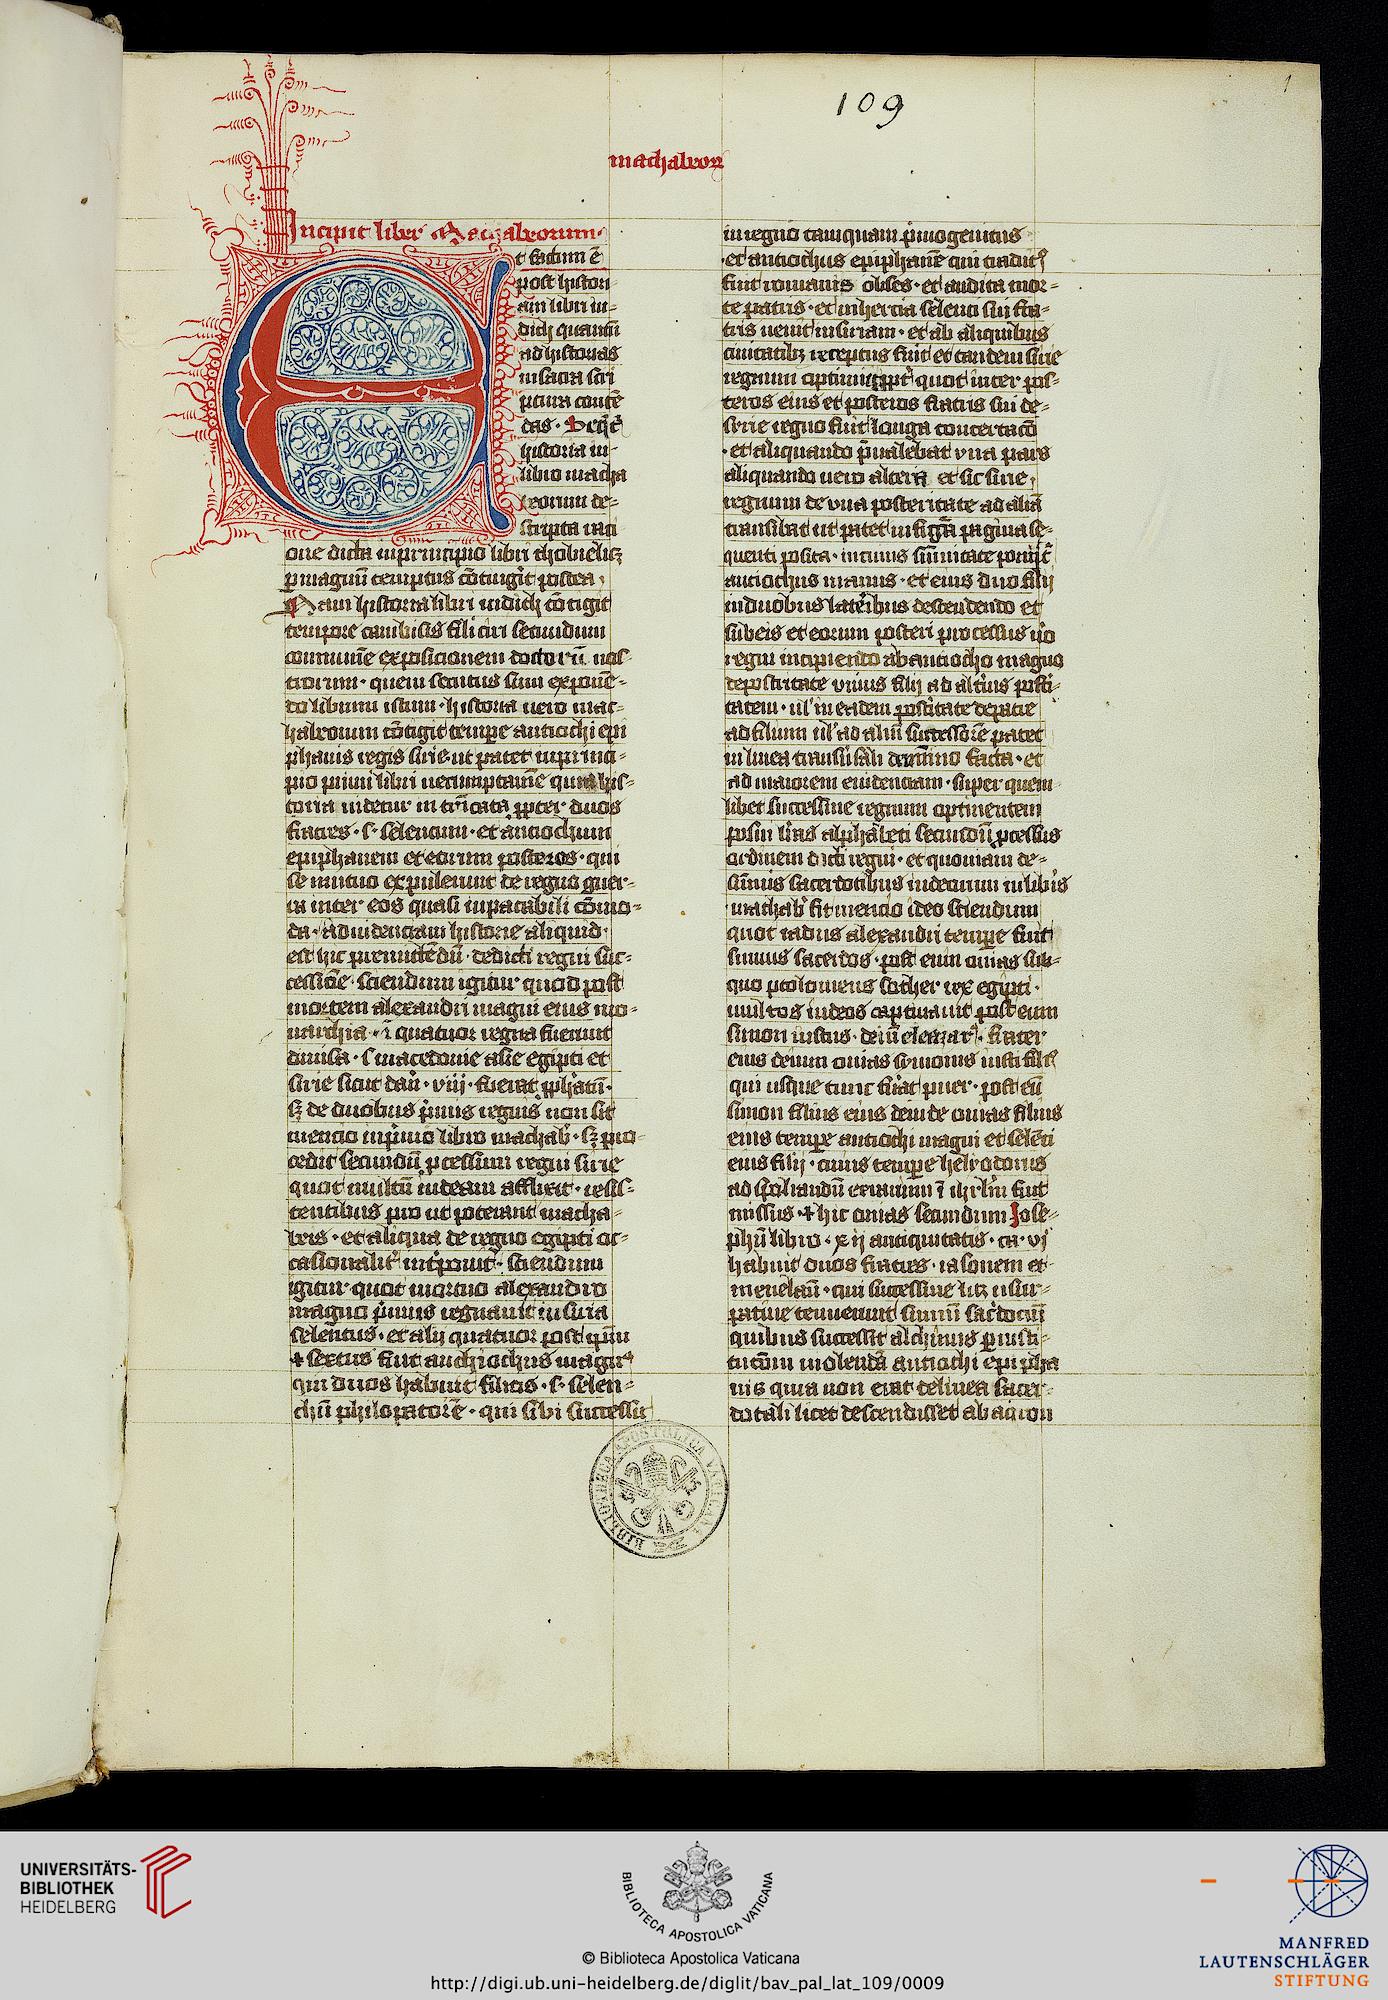 109
1
machabeoꝝ
Incipit liber Machabeorum·
Et factum ē
post histori-
am libri iu-
dich quantū
ad historias
in sacra scri
ptura conte
historia in
libro macha
beorum de-
scripta
one dicta in principio libri thobie licꝫ
ꝑ magnū tempus cōtingit postea
Nam historia libri iudich cōtigit
tempore cambisis filii ciri secundum
comunē exposicionem doctorū nos-
trorum· quem secutus sum exponē-
do librum istum· historia uero mac-
habeorum cōtigit tempe antiochi epi
phanis regis sirie· ut patet in princi-
pio primi libri uerumptamē quia his-
toria uidetur in tricata ꝓpter duos
fratres· s· seleucum· et antiochum
epiphanem et eorum posteros· qui
se mutuo expulerunt de regno guer-
ra inter eos quasi inpacabili cōmo-
ta· Ad uidenciam historie aliquid·
est hic premittēdū· dedicti regni suc-
cessiōe· Sciendum igitur quod post
mortem alexandri magni eius mo-
narchia· ī quatuor regna fuerunt
diuisa· s macedonie asie egipti et
sirie sicut dan̄· viij· fuerat ꝓphatū·
sꝫ de duobus p̄mis regnis non sit
mencio in p̄mo libro machab̄· sꝫ pro-
cedit secundū ꝓcessum regni sirie
quot multū iudeam afflixit· resis-
tentibus pro ut poterant macha-
beis· et aliqua de regno egipti oc-
casionalit̄ int̄ponit· Sciendum
igitur quot mortuo alexandro
magno p̄mus regnauit in siria
seleucus· et alij quatuor post ip̄um
+ sextus fuit anthiochus magn9
qui duos habuit filios· s· seleu-
chū philopatorē· qui sibi successit
in regno tamquam p̄mogenitus
·et antiochus epiphanē qui tradit9
fuit romanis obses· et audita mor-
te patris· et inhercia seleuci sui fra-
tris uenit in siriam· et ab aliquibus
ciuitatibꝫ receptus fuit et tandem sirie
regnum optinuit ꝓpt̄ quot inter pos-
teros eius et posteros fratris sui de-
sirie regno fuit longa concertacō
·et aliquando p̄ualebat vna pars
aliquando uero altera et sic sirie
regnum de vna posteritate ad aliā
transibat ut patet in figura pagina se-
quenti posita· in cuius sūmitate ponit̄
antiochus manus· et eius duo filij
in duobus lateribus descendendo et
sub eis et eorum posteri processus u̇o
regni incipiendo ab antiocho magno
de postritate vnius filij ad alt̄ius post̄i-
tatem· ul̄ in eadem post̄itate de patre
ad filium ul̄ ad aliū successorē patet
in linea transūsali de minio facta· et
ad maiorem euidenciam· super quem-
libet successiue regnum optinentem
posui lr̄as alphabeti secundū ꝓcessus
ordinem dicti regni· et quoniam de-
sūmis sacerdotibus iudeorum in libris
machab̄ fit mencio ideo sciendum
quot iadus alexandri tempe fuit
sūmus sacerdos· post eum onias sub-
quo ptolomeus sother rex egipti·
multos iudeos captiuauit post eum
simon iustus· dein̄ eleazar9· frater
eius deinn onias symonis iusti fili9
qui usque tunc fūat puer· post eū
simon filius eius deinde onias filius
eius tempe antiochi magni et seleuci
eius filij· cuius tempe helyodorus
ad spoliandū erarium ī ihrlm̄ fuit
missus· + hic onias secundum Iose-
phū libro· xij antiquitatis· ca· vj
habuit duos fratres· iasonem et
menelaū· qui successiue licꝫ usur-
patiue tenuerunt sūmū sac̄docium
quibus successit alchimus ꝑ insti-
tucōm uiolentā antiochi epipha
nis quia non erat de linea sacer-
dotali licet descendisset ab aaron
BIBLIOTHECA APOSTOLICA VATICANA
UNIVERSITÄTS-
BIBLIOTHEK
HEIDELBERG
BIBLIOTECA APOSTOLICA VATICANA
© Biblioteca Apostolica Vaticana
http://digi.ub.uni-heidelberg.de/diglit/bav_pal_lat_109/0009
MANFRED
LAUTENSCHLÄGER
STIFTUNG